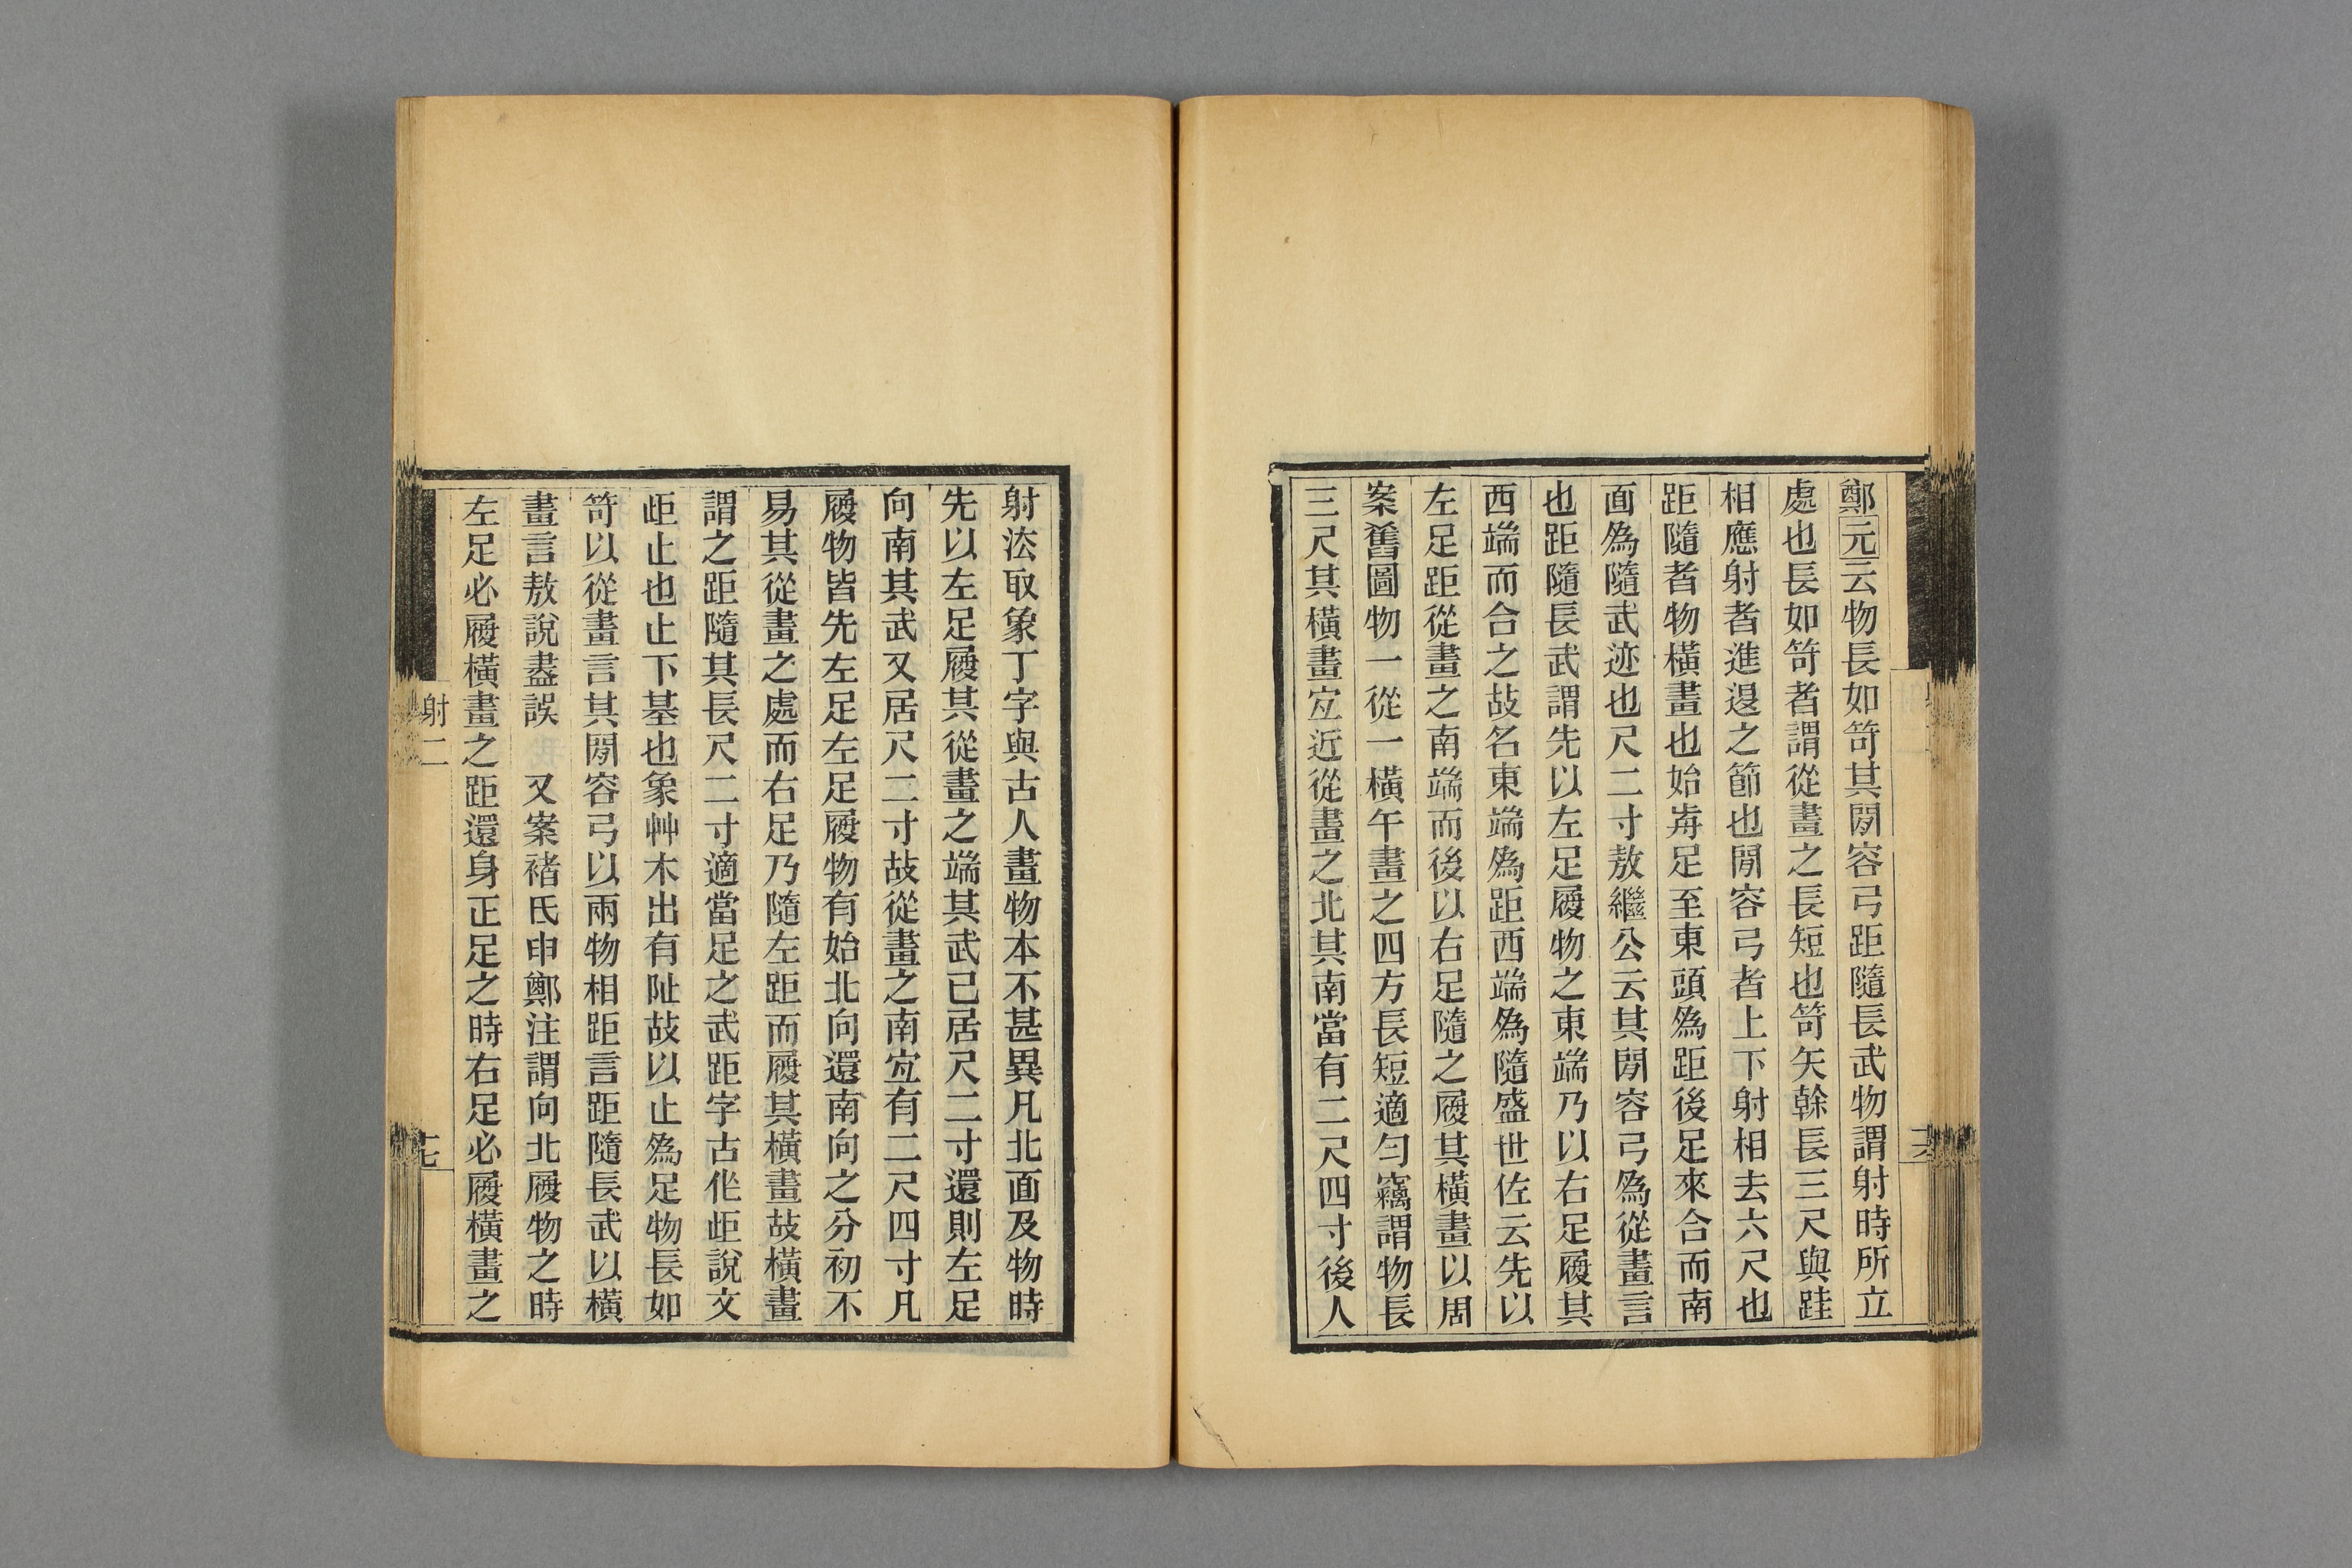 鄭元云物長如笴其閒容弓距隨長武物謂射時所立
處也長如笴者謂從畫之長短也笴矢榦長三尺與跬
相應射者進退之節也閒容弓者上下射相去六尺也
距隨者物橫畫也始歬足至東頭爲距後足來合而南
面爲隨武迹也尺二寸敖繼公云其閒容弓爲從畫言
也距隨長武謂先以左足履物之東端乃以右足履其
西端而合之故名東端爲距西端爲隨盛世佐云先以
左足距從畫之南端而後以右足隨之履其橫畫以周
案舊圖物一從一橫午畫之四方長短適勻竊謂物長
三尺其橫畫宐近從畫之北其南當有二尺四寸後人
射法取象丁字與古人畫物本不甚異凡北面及物時
先以左足履其從畫之端其武已居尺二寸還則左足
向南其武又居尺二寸故從畫之南宐有二尺四寸凡
履物皆先左足左足履物有始北向還南向之分初不
易其從畫之處而右足乃隨左距而履其橫畫故橫畫
謂之距隨其長尺二寸適當足之武距字古作歫說文
歫止也止下基也象艸木出有阯故以止爲足物長如
笴以從畫言其閒容弓以兩物相距言距隨長武以橫
畫言敖說盡誤　又案褚氏申鄭注謂向北履物之時
左足必履橫畫之距還身正足之時右足必履橫畫之
射二
十七